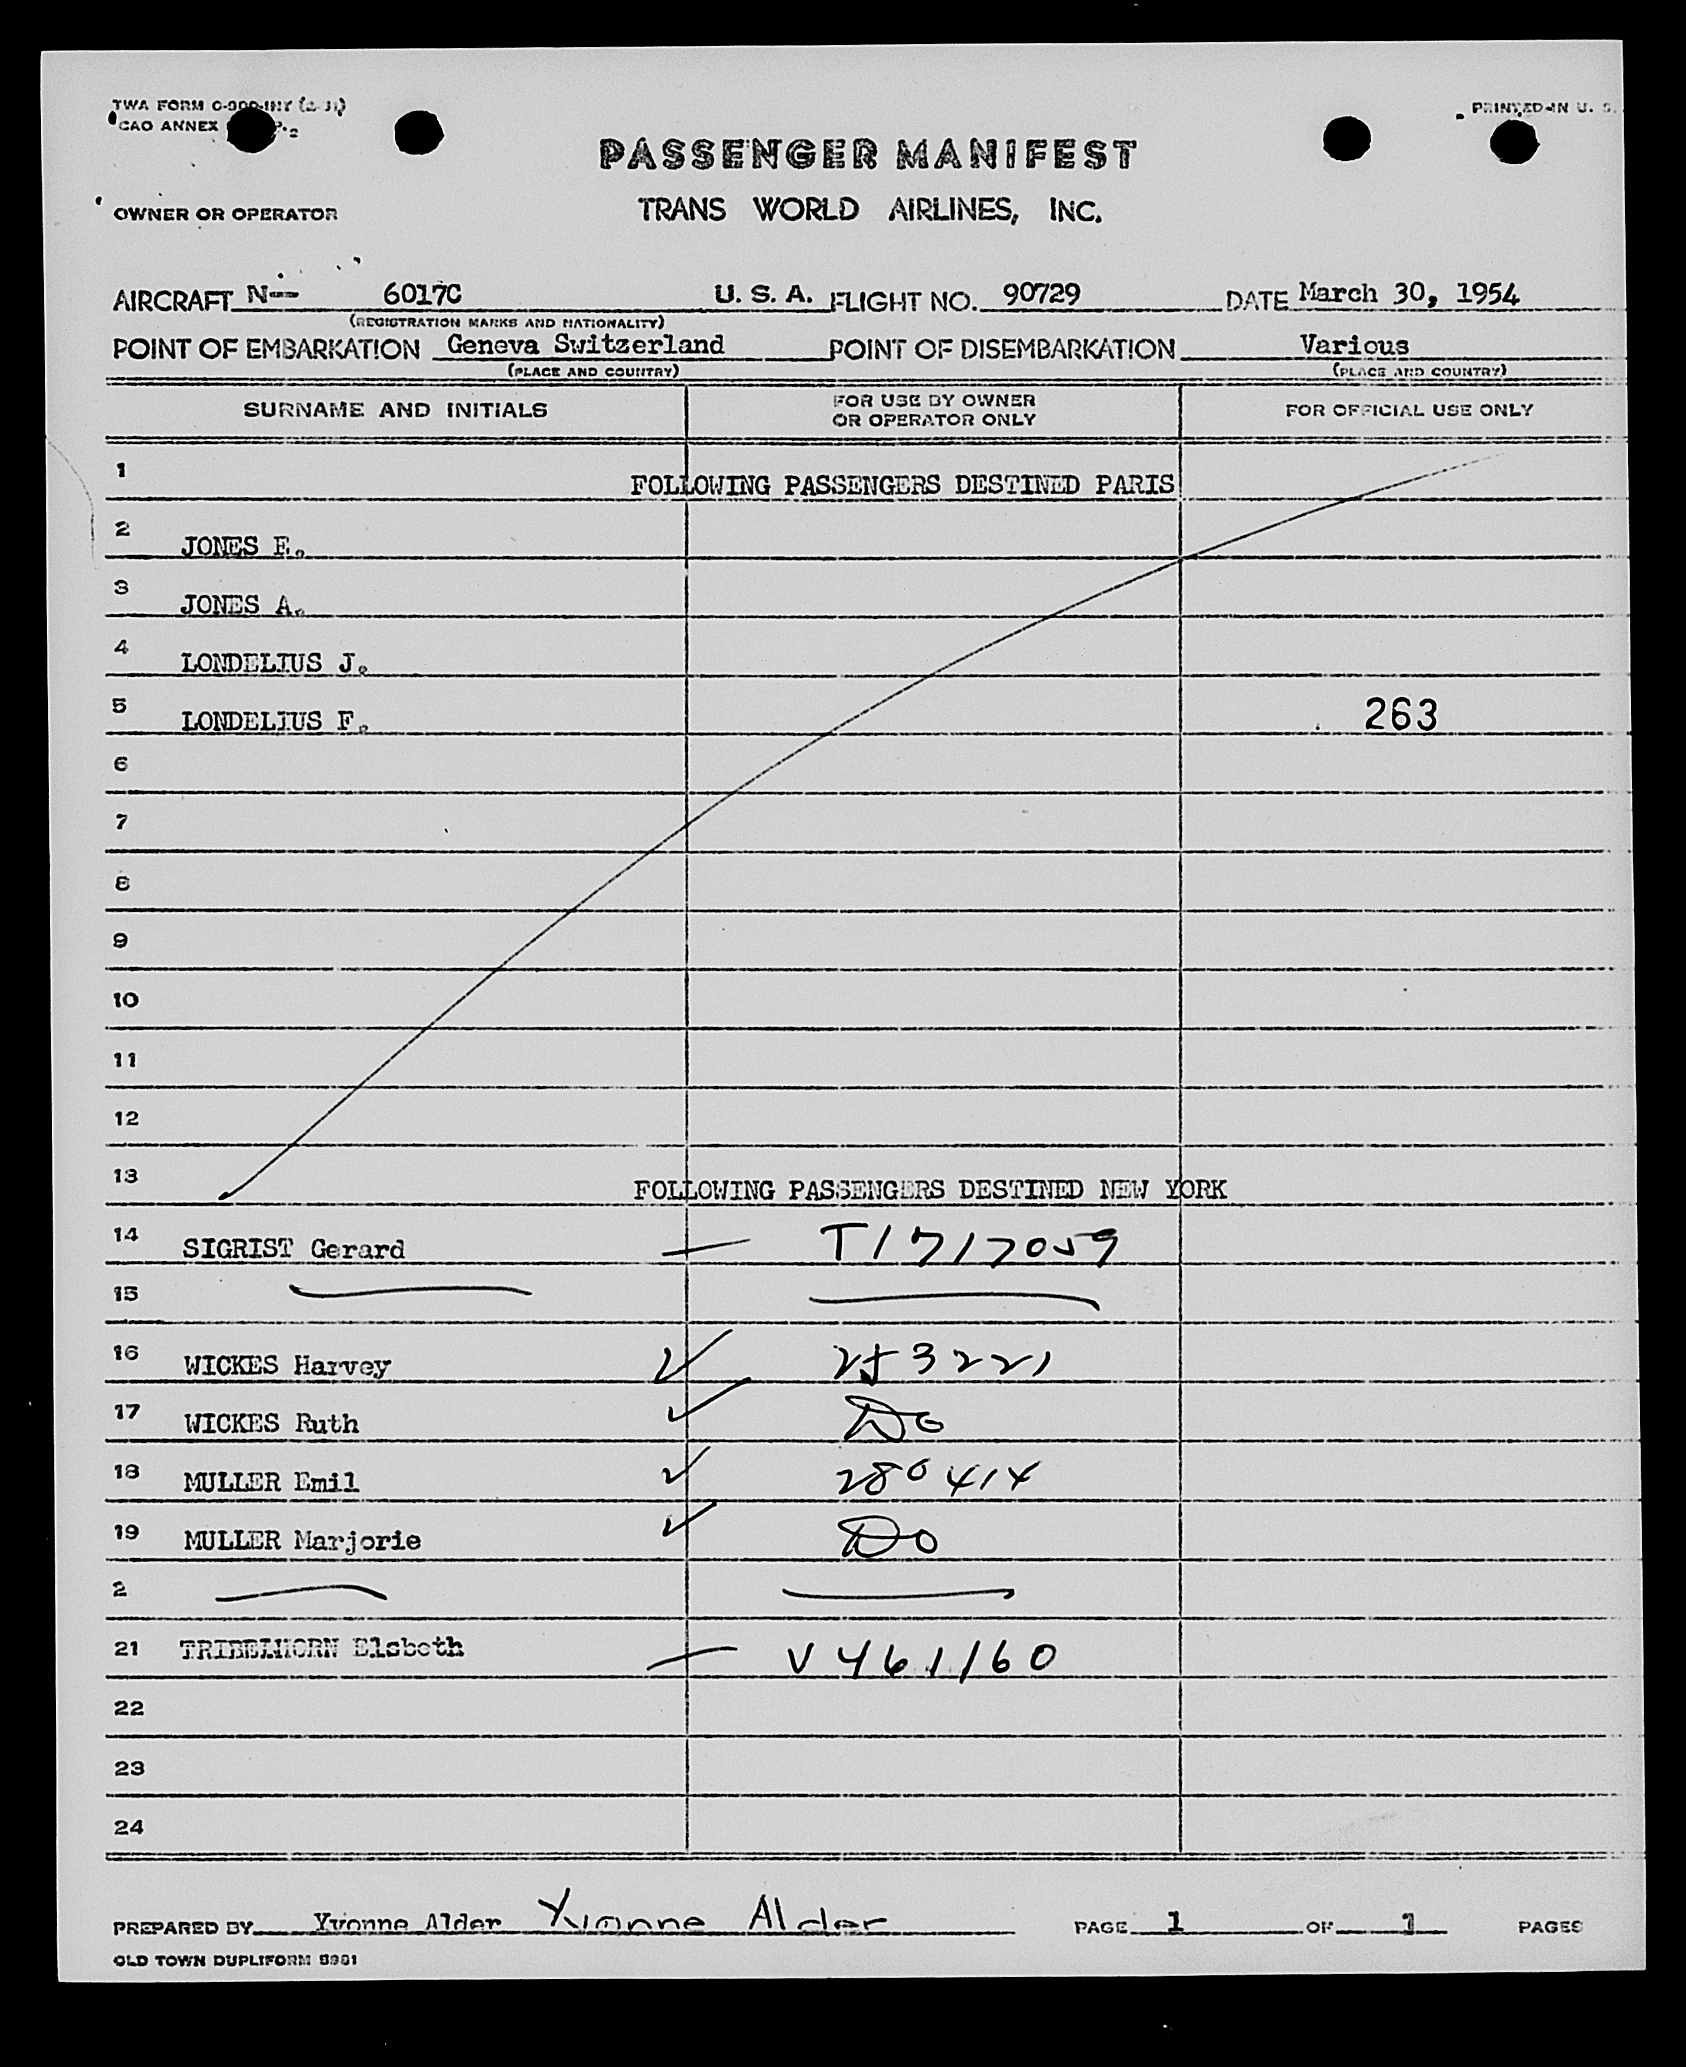 TWA FORM
PRINTED IN U. S.
CAO ANNEX
PASSENGER MANIFEST
OWNER OR OPERATOR
TRANS WORLD AIRLINES, INC.
AIRCRAFT N-- 6017C U. S. A. FLIGHT NO. 90729 DATE March 30, 1954
(REGISTRATION MARKS AND NATIONALITY)
POINT OF EMBARKATION Geneva Switzerland POINT OF DISEMBARKATION Various
(PLACE AND COUNTRY) (PLACE AND COUNTRY)
SURNAME AND INITIALS FOR USE BY OWNER OR OPERATOR ONLY FOR OFFICIAL USE ONLY
1 FOLLOWING PASSENGERS DESTINED PARIS
2 JONES E.
3 JONES A.
4 LONDELIUS J.
5 LONDELIUS F. 263
6
7
8
9
10
11
12
13 FOLLOWING PASSENGERS DESTINED NEW YORK
14 SIGRIST Gerard — T1717059
15
16 WICKES Harvey ✓ 253221
17 WICKES Ruth ✓ Do
18 MULLER Emil ✓ 280414
19 MULLER Marjorie ✓ Do
2
21 TRIBELHORN Elsbeth — V461160
22
23
24
PREPARED BY Yvonne Alder Yvonne Alder PAGE 1 OF 1 PAGES
OLD TOWN DUPLIFORM